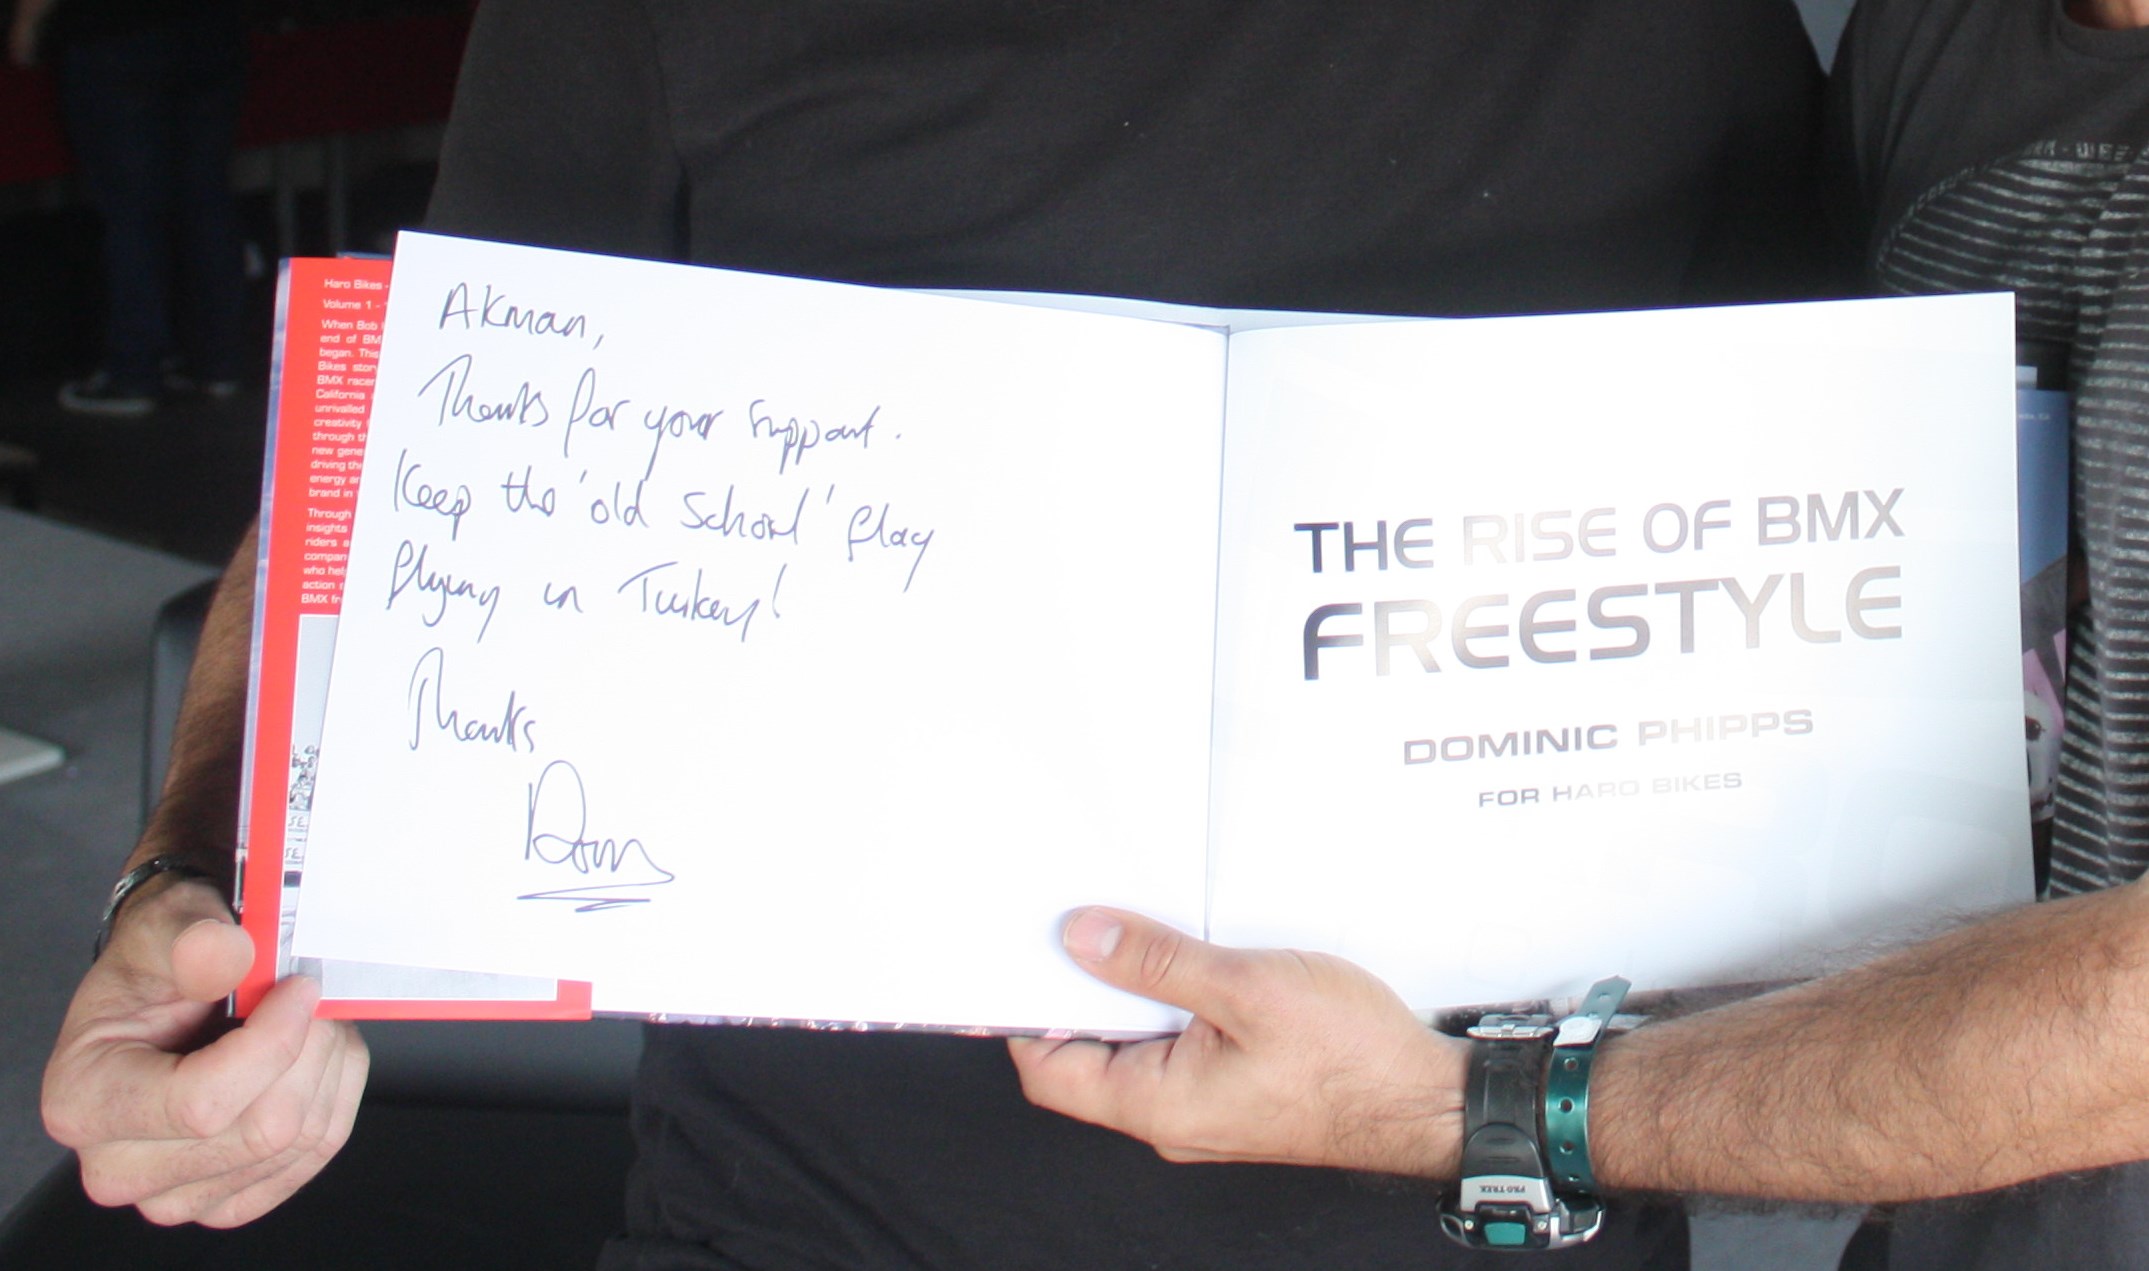 Haro Bikes -
Volume 1 -
When Bob
end of BM
began. This
Bikes story
BMX racer
California
unrivalled
creativity
through th
new gene
driving the
energy an
brand in
Through
insights
riders a
compan
who hel
action
BMX fr
Akman,
Thanks for your support.
Keep the 'old School' flag
flying in Turkey!
Thanks
Dom
THE RISE OF BMX
FREESTYLE
DOMINIC PHIPPS
FOR HARO BIKES
PRO TREK